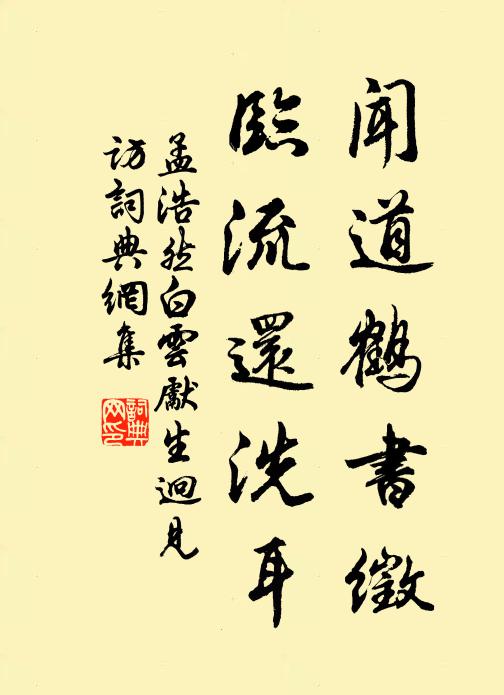 聞道鶴書徵
臨流還洗耳
孟浩然白雲獻生迴見
訪詞典網集
詞典网印